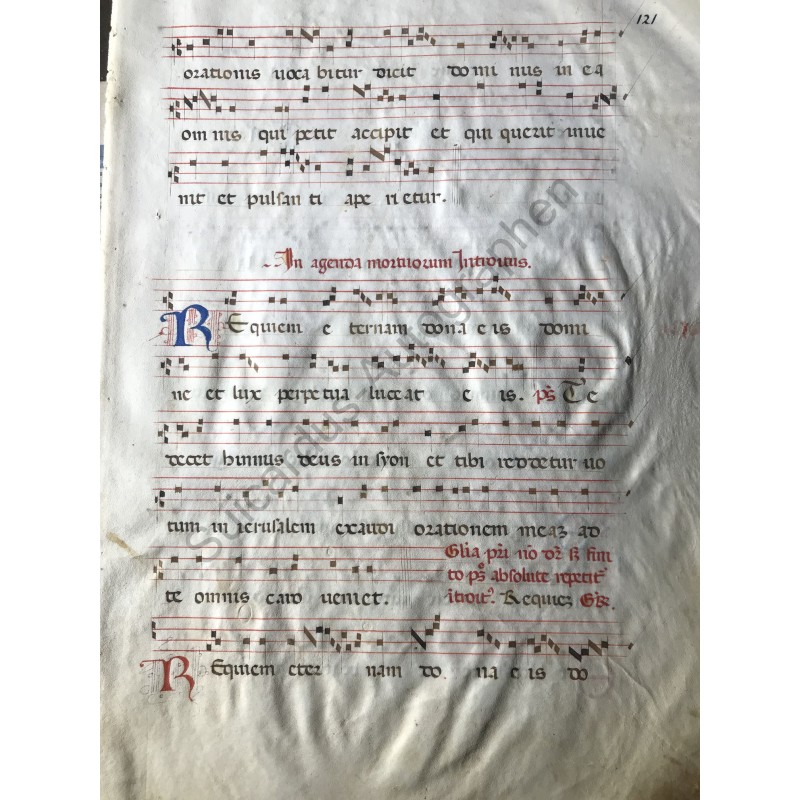 121
orationis uoca bitur dicit do mi nus in ea
om nis qui petit accipit et qui querit inue
nit et pulsan ti ape ri etur.
In agenda mortuorum Introitus.
REquiem e ternam dona e is domi
ne et lux perpetua luceat e is. ps Te
decet himnus deus in syon et tibi reddetur uo
tum in ierusalem exaudi orationem meaʒ ad
Glia pri no dr ſʒ fini
te omnis caro ueniet.
to ps absolute repetit
itroit. Requieʒ Gr.
REquiem eter nam do na e is do
Suicardus-Autographen